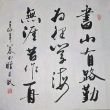 書山有路勤
為徑學海
無涯苦作舟